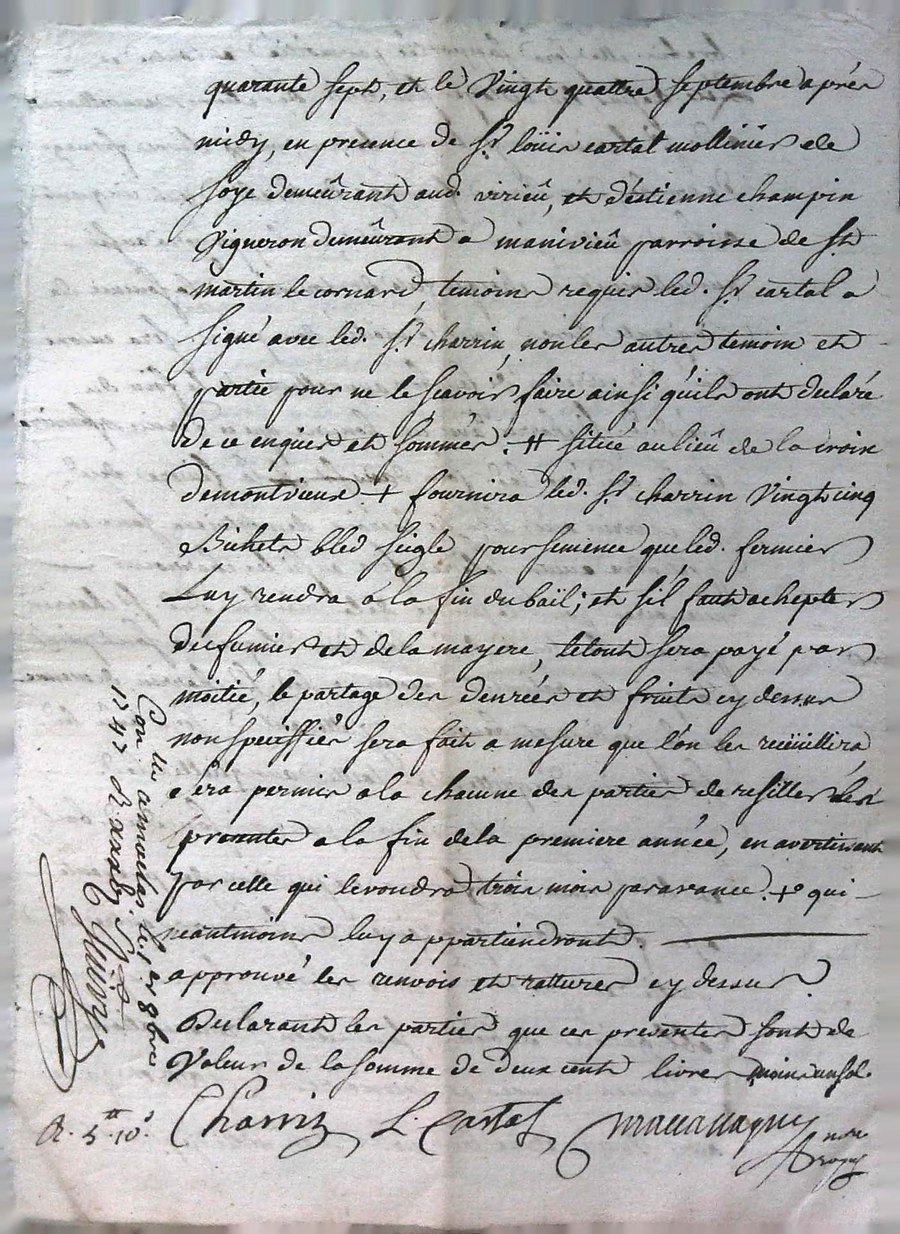 quarante sept, et le Vingt quattre septembre aprés
midy, en presence de Sr. loüis cartal mollinier de
soye demeûrant aud. virieû, et d'estienne champin
Vigneron demeûrant a manivieû parroisse de St
martin le cornard, temoins requis led. Sr cartal a
signé avec led. Sr charrin, non les autres temoin et
partie pour ne le scavoir faire ainsi qu'ils ont declaré
de ce enquis et sommés. # situé au lieû de la croix
de montvieux + fournira led. Sr charrin Vingt cinq
Bichets bled seigle pour semence que led. fermier
Luy rendra a la fin du bail; et s'il faut achepter
du fumier et de la mayere, le tout sera payé par
moitié, le partage des denrées et fruits cy dessus
non speciffiés sera fait a mesure que l'on les recüeillira
sera permis a la chacune des parties de resillier les
presentes a la fin de la premiere année, en avertissant
par celle qui le voudra trois mois par avance. +o qui
neantmoins luy appartiendront.
approuvé les renvois et ratures cy dessus
Declarant les parties que ces presentes sont de
Valeur de la somme de deux cent livres moins un sol.
Charrin L. Cartal
R. 5tt 10s.
Con lle a le 1er 8bre
1747 R.